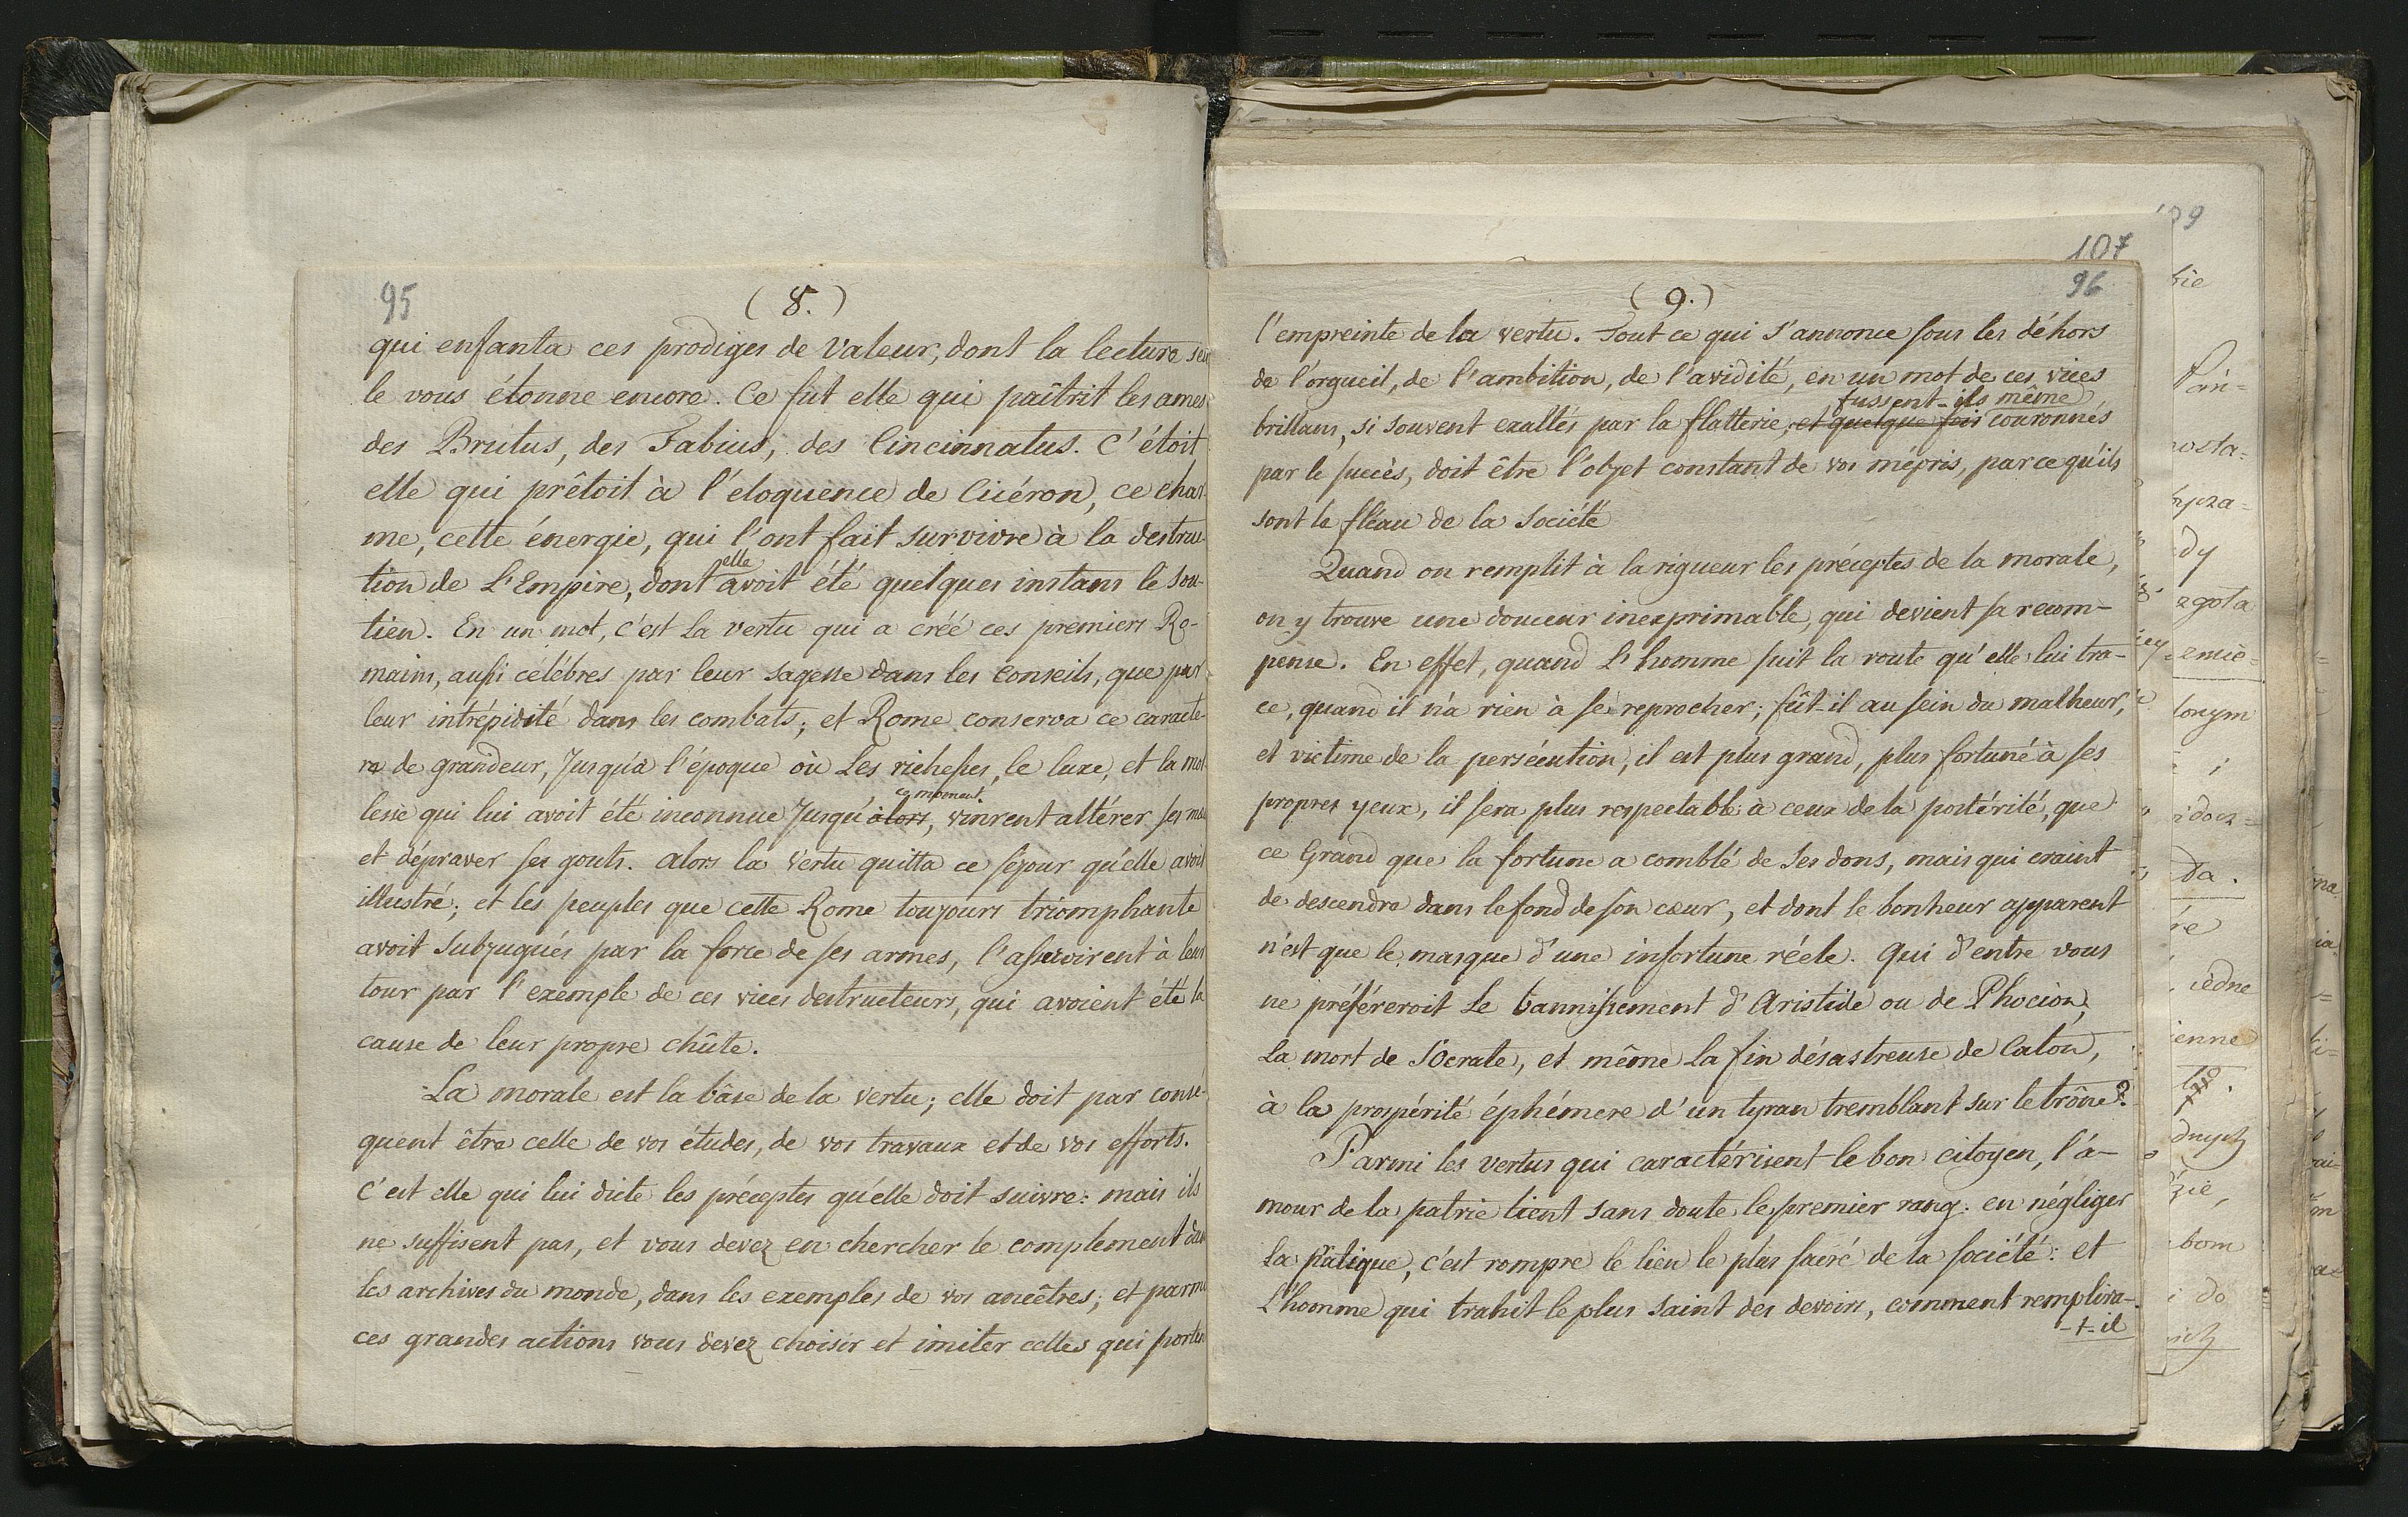 95
(8.)
qui enfanta ces prodiges de valeur, dont la lecture seu
le vous étonne encore. Ce fut elle qui paîtrit les ames
des Brutus, des Fabius, des Cincinnatus. C'étoit
elle qui prêtoit à l'éloquence de Cicéron, ce char
me, cette énergie, qui l'ont fait survivre à la destruc
elle
tion de l'Empire, dont avoit été quelques instans le sou-
tien. En un mot, c'est la vertu qui a créé ces premiers Ro-
mains, aussi célébres par leur sagesse dans les conseils, que par
leur intrépidité dans les combats; et Rome conserva ce caracte-
re de grandeur, jusqu'à l'époque où les richesses, le luxe, et la mol
ce moment.
lesse qui lui avoit été inconnue jusqu'alors, vinrent altérer ses mœ
et dépraver ses gouts. alors la vertu quitta ce séjour qu'elle avoit
illustré; et les peuples que cette Rome toujours triomphante
avoit subjugués par la force de ses armes, l'asservirent à leur
tour par l'exemple de ces vices destructeurs, qui avoient été la
cause de leur propre chûte.
La morale est la bâse de la vertu; elle doit par consé-
quent être celle de vos études, de vos travaux et de vos efforts.
c'est elle qui lui dicte les préceptes qu'elle doit suivre: mais ils
ne suffisent pas, et vous devez en chercher le complement dans
les archives du monde, dans les exemples de vos ancêtres; et parmi
ces grandes actions vous devez choisir et imiter celles qui porten
107
96
(9.)
l'empreinte de la vertu. Tout ce qui s'annonce sous les déhors
de l'orgueil, de l'ambition, de l'avidité, en un mot de ces vices
fussent-ils même
brillans, si souvent exaltés par la flatterie, et quelque fois couronnés
par le succès, doit être l'objet constant de vos mépris, parce qu'ils
sont le fléau de la société
Quand on remplit à la rigueur les préceptes de la morale,
on y trouve une douceur inexprimable, qui devient sa recom-
pense. En effet, quand l'homme suit la route qu'elle lui tra-
ce, quand il n'a rien à se reprocher; fût-il au sein du malheur,
et victime de la persécution, il est plus grand, plus fortuné à ses
propres yeux, il sera plus respectable à ceux de la postérité, que
ce Grand que la fortune a comblé de ses dons, mais qui craint
de descendre dans le fond de son cœur, et dont le bonheur apparent
n'est que le masque d'une infortune réele. Qui d'entre vous
ne préféreroit le bannissement d'Aristide ou de Phocion,
la mort de Socrate, et même la fin désastreuse de Caton,
à la prospérité éphémere d'un tyran tremblant sur le trône?
Parmi les vertus qui caractérisent le bon citoyen, l'a-
mour de la patrie tient sans doute le premier rang: en négliger
la pratique, c'est rompre le lien le plus sacré de la société: et
l'homme qui trahit le plus saint des devoirs, comment remplira-
-t-il